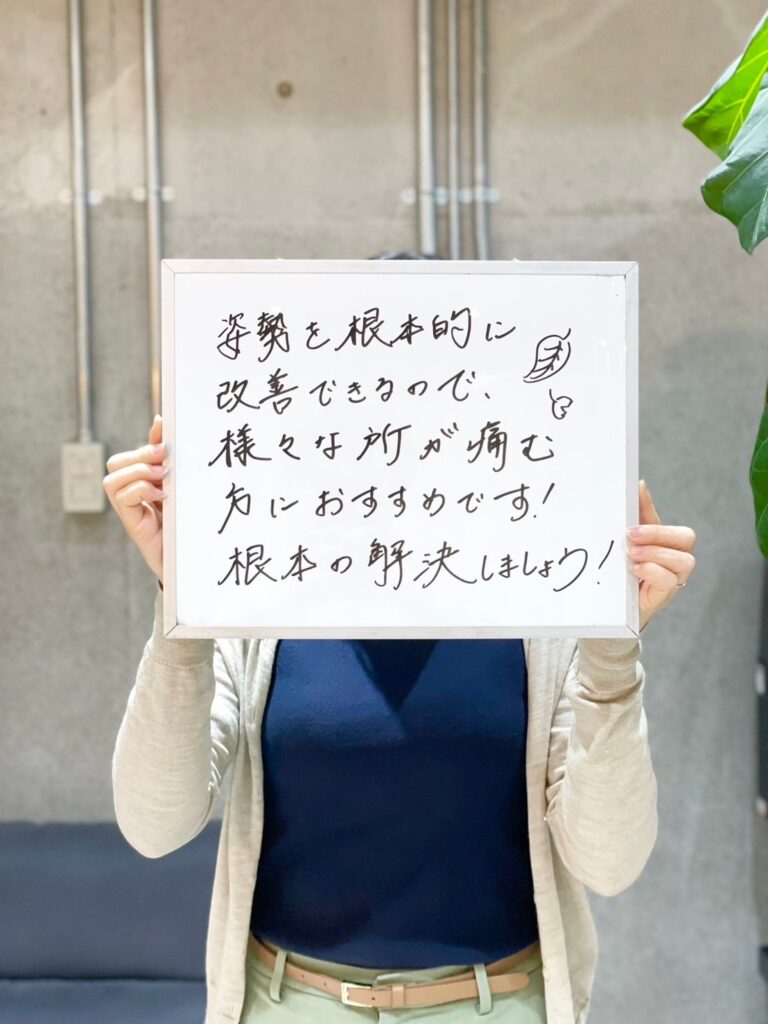 姿勢を根本的に
改善できるので、
様々な所が痛む
方におすすめです!
根本の解決しましょう!